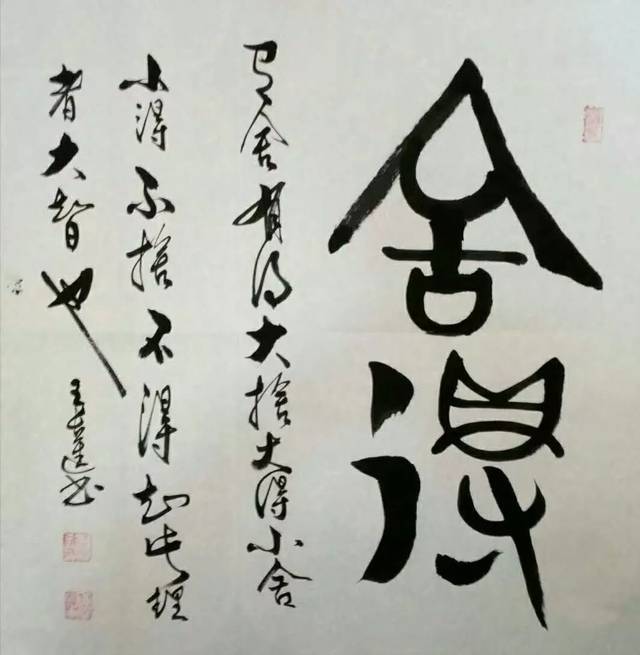 舍得
有舍有得大捨大得小舍
小得不捨不得知此理
者大智也
王莲书